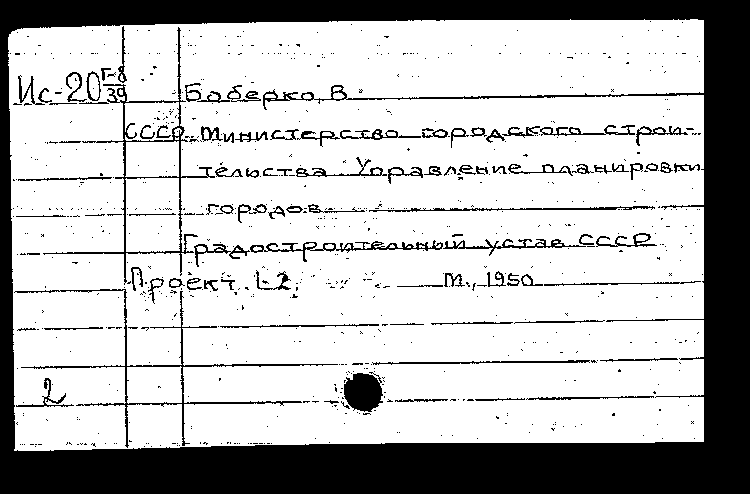 Ис-20 Г-8/39 Боберко, В.
СССР. Министерство городского строи-
тельства. Управление планировки
городов.
Градостроительный устав СССР
Проект. 1-2. М., 1950
2